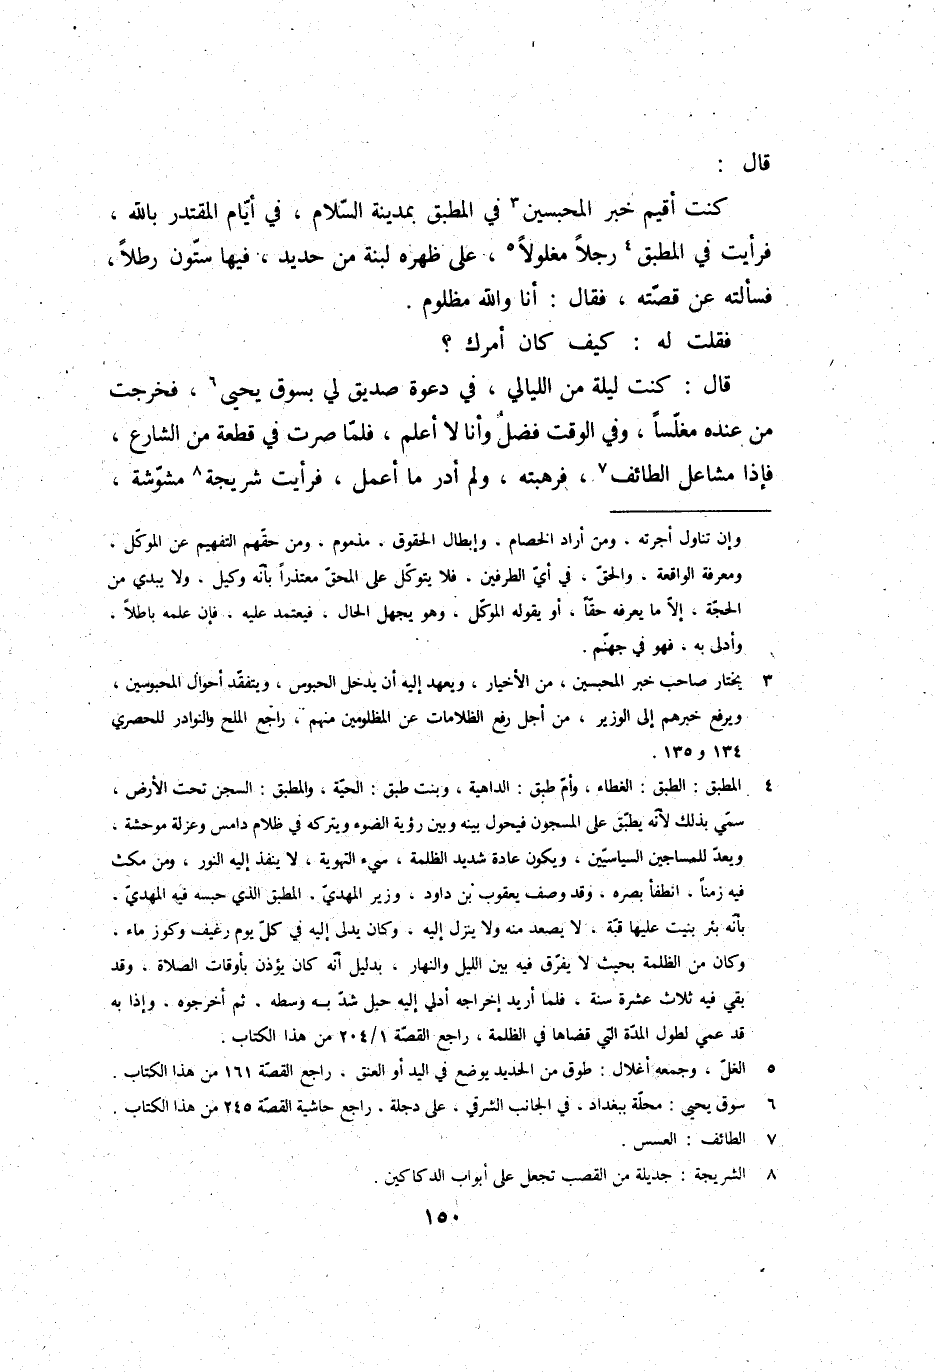 قال :
كنت أقيم خبر المحبسين٣ في المطبق بمدينة السّلام ، في أيّام المقتدر بالله ،
فرأيت في المطبق٤ رجلاً مغلولاً٥ ، على ظهره لبنة من حديد ، فيها ستّون رطلاً ،
فسألته عن قصّته ، فقال : أنا والله مظلوم .
فقلت له : كيف كان أمرك ؟
قال : كنت ليلة من الليالي ، في دعوة صديق لي بسوق يحيى٦ ، فخرجت
من عنده مغلّساً ، وفي الوقت فضلٌ وأنا لا أعلم ، فلمّا صرت في قطعة من الشارع ،
فإذا مشاعل الطائف٧ ، فرهبته ، ولم أدر ما أعمل ، فرأيت شريجة٨ مشوّشة ،
وإن تناول أجرته . ومن أراد الخصام . وإبطال الحقوق . مذموم . ومن حقّهم التفهيم عن الموكّل .
ومعرفة الواقعة . والحقّ . في أيّ الطرفين . فلا يتوكّل على المحقّ معتذراً بأنّه وكيل . ولا يبدي من
الحجّة . إلاّ ما يعرفه حقّاً . أو يقوله الموكّل . وهو يجهل الحال . فيعتمد عليه . فإن علمه باطلاً .
وأدلى به ، فهو في جهنّم .
٣ يختار صاحب خبر المحبسين ، من الأخيار ، ويعهد إليه أن يدخل الحبوس ، ويتفقّد أحوال المحبوسين ،
ويرفع خبرهم إلى الوزير ، من أجل رفع الظلامات عن المظلومين منهم ، راجع الملح والنوادر للحصري
١٣٤ و ١٣٥ .
٤ المطبق : الطبق : الغطاء ، وأمّ طبق : الداهية ، وبنت طبق : الحيّة ، والمطبق : السجن تحت الأرض ،
سمّي بذلك لأنّه يطبّق على المسجون فيحول بينه وبين رؤية الضوء ويتركه في ظلام دامس وعزلة موحشة ،
ويعدّ للمساجين السياسيّين ، ويكون عادة شديد الظلمة ، سيء التهوية ، لا ينفذ إليه النور ، ومن مكث
فيه زمناً . انطفأ بصره . وقد وصف يعقوب بن داود ، وزير المهديّ . المطبق الذي حبسه فيه المهديّ .
بأنّه بئر بنيت عليها قبّة . لا يصعد منه ولا ينزل إليه . وكان يدلى إليه في كلّ يوم رغيف وكوز ماء .
وكان من الظلمة بحيث لا يفرّق فيه بين الليل والنهار ، بدليل أنّه كان يؤذن بأوقات الصلاة ، وقد
بقي فيه ثلاث عشرة سنة ، فلما أريد إخراجه أدلي إليه حبل شدّ بـه وسطه . ثم أخرجوه . وإذا به
قد عمي لطول المدّة التي قضاها في الظلمة ، راجع القصّة ٢٠٤/١ من هذا الكتاب .
٥ الغلّ ، وجمعه أغلال : طوق من الحديد يوضع في اليد أو العنق . راجع القصّة ١٦١ من هذا الكتاب .
٦ سوق يحيى : محلّة ببغداد ، في الجانب الشرقي ، على دجلة . راجع حاشية القصّة ٢٤٥ من هذا الكتاب .
٧ الطائف : العسس .
٨ الشريجة : جديلة من القصب تجعل على أبواب الدكاكين .
١٥٠